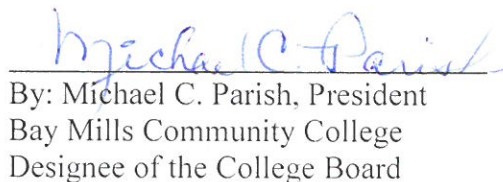 Michael C. Parish
By: Michael C. Parish, President
Bay Mills Community College
Designee of the College Board